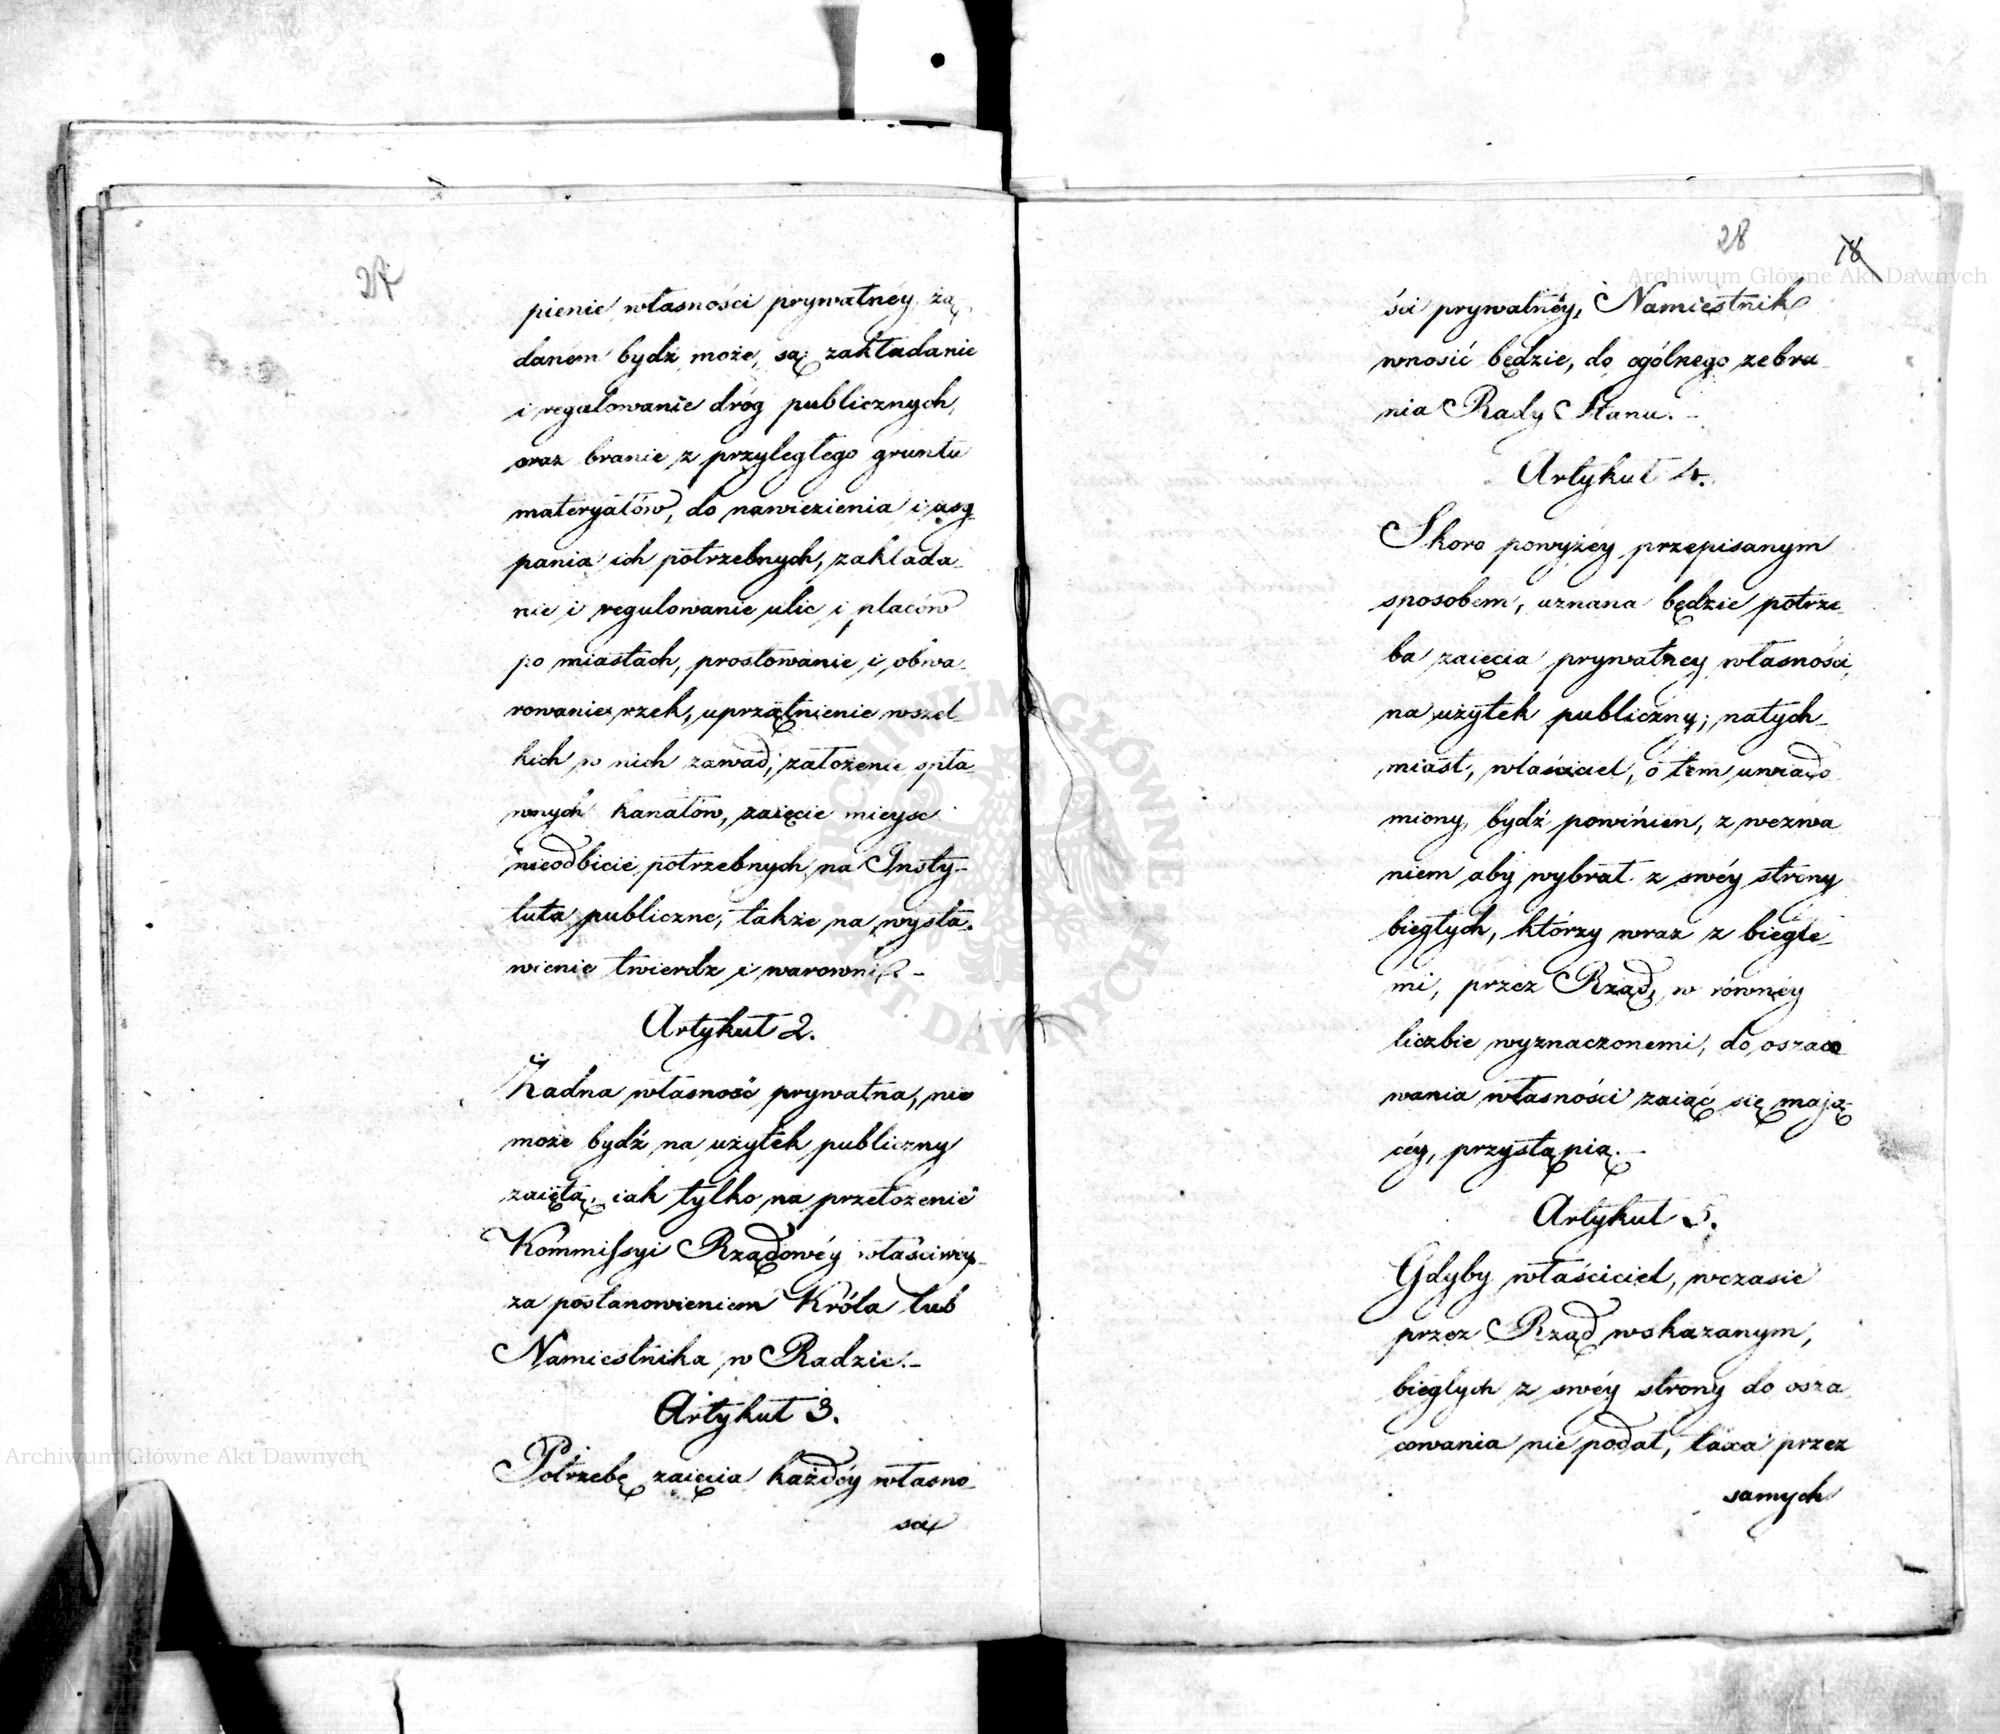 27
pienie własności prywatnéy żą
danem bydź może, są: zakładanie
i regulowanie dróg publicznych,
oraz branie z przyległego gruntu
materyałów, do nawiezienia i usy
pania ich potrzebnych, zaklada-
nie i regulowanie ulic i placów
po miastach, prostowanie i obwa-
rowanie rzek, uprzątnienie wszel-
kich po nich zawad; założenie spła
wnych kanałów, zaięcie mieysc
nieodbicie potrzebnych na Insty-
tuta publiczne, także na wysta-
wienie twierdz i warowni.-
Artykuł 2.
Żadna własność prywatna, nie
może bydź na użytek publiczny
zaiętą, iak tylko na przełożenie
Kommissyi Rządowéy właściwéy
za postanowieniem Króla lub
Namiestnika w Radzie.-
Artykuł 3.
Potrzebę zaięcia każdéy własno-
ści
28
18
ści prywatnéy, Namiestnik
wnosić będzie, do ogólnego zebra-
nia Rady Stanu.-
Artykuł 4.
Skoro powyżéy przepisanym
sposobem, uznana będzie potrze-
ba zaięcia prywatney własności,
na użytek publiczny; natych-
miast, właściciel, o tem uwiado
miony bydź powinien, z wezwa
niem aby wybrał z swéy strony
biegłych, którzy wraz z biegłe-
mi, przez Rząd, w równéy
liczbie wyznaczonemi, do oszaco
wania własności zaiąć się mają-
céy, przystąpią.-
Artykuł 5.
Gdyby właściciel, wczasie
przez Rząd wskazanym,
biegłych z swéy strony do osza
cowania nie podał, taxa przez
samych
Archiwum Główne Akt Dawnych
Archiwum Główne Akt Dawnych
ARCHIWUM GŁÓWNE AKT DAWNYCH